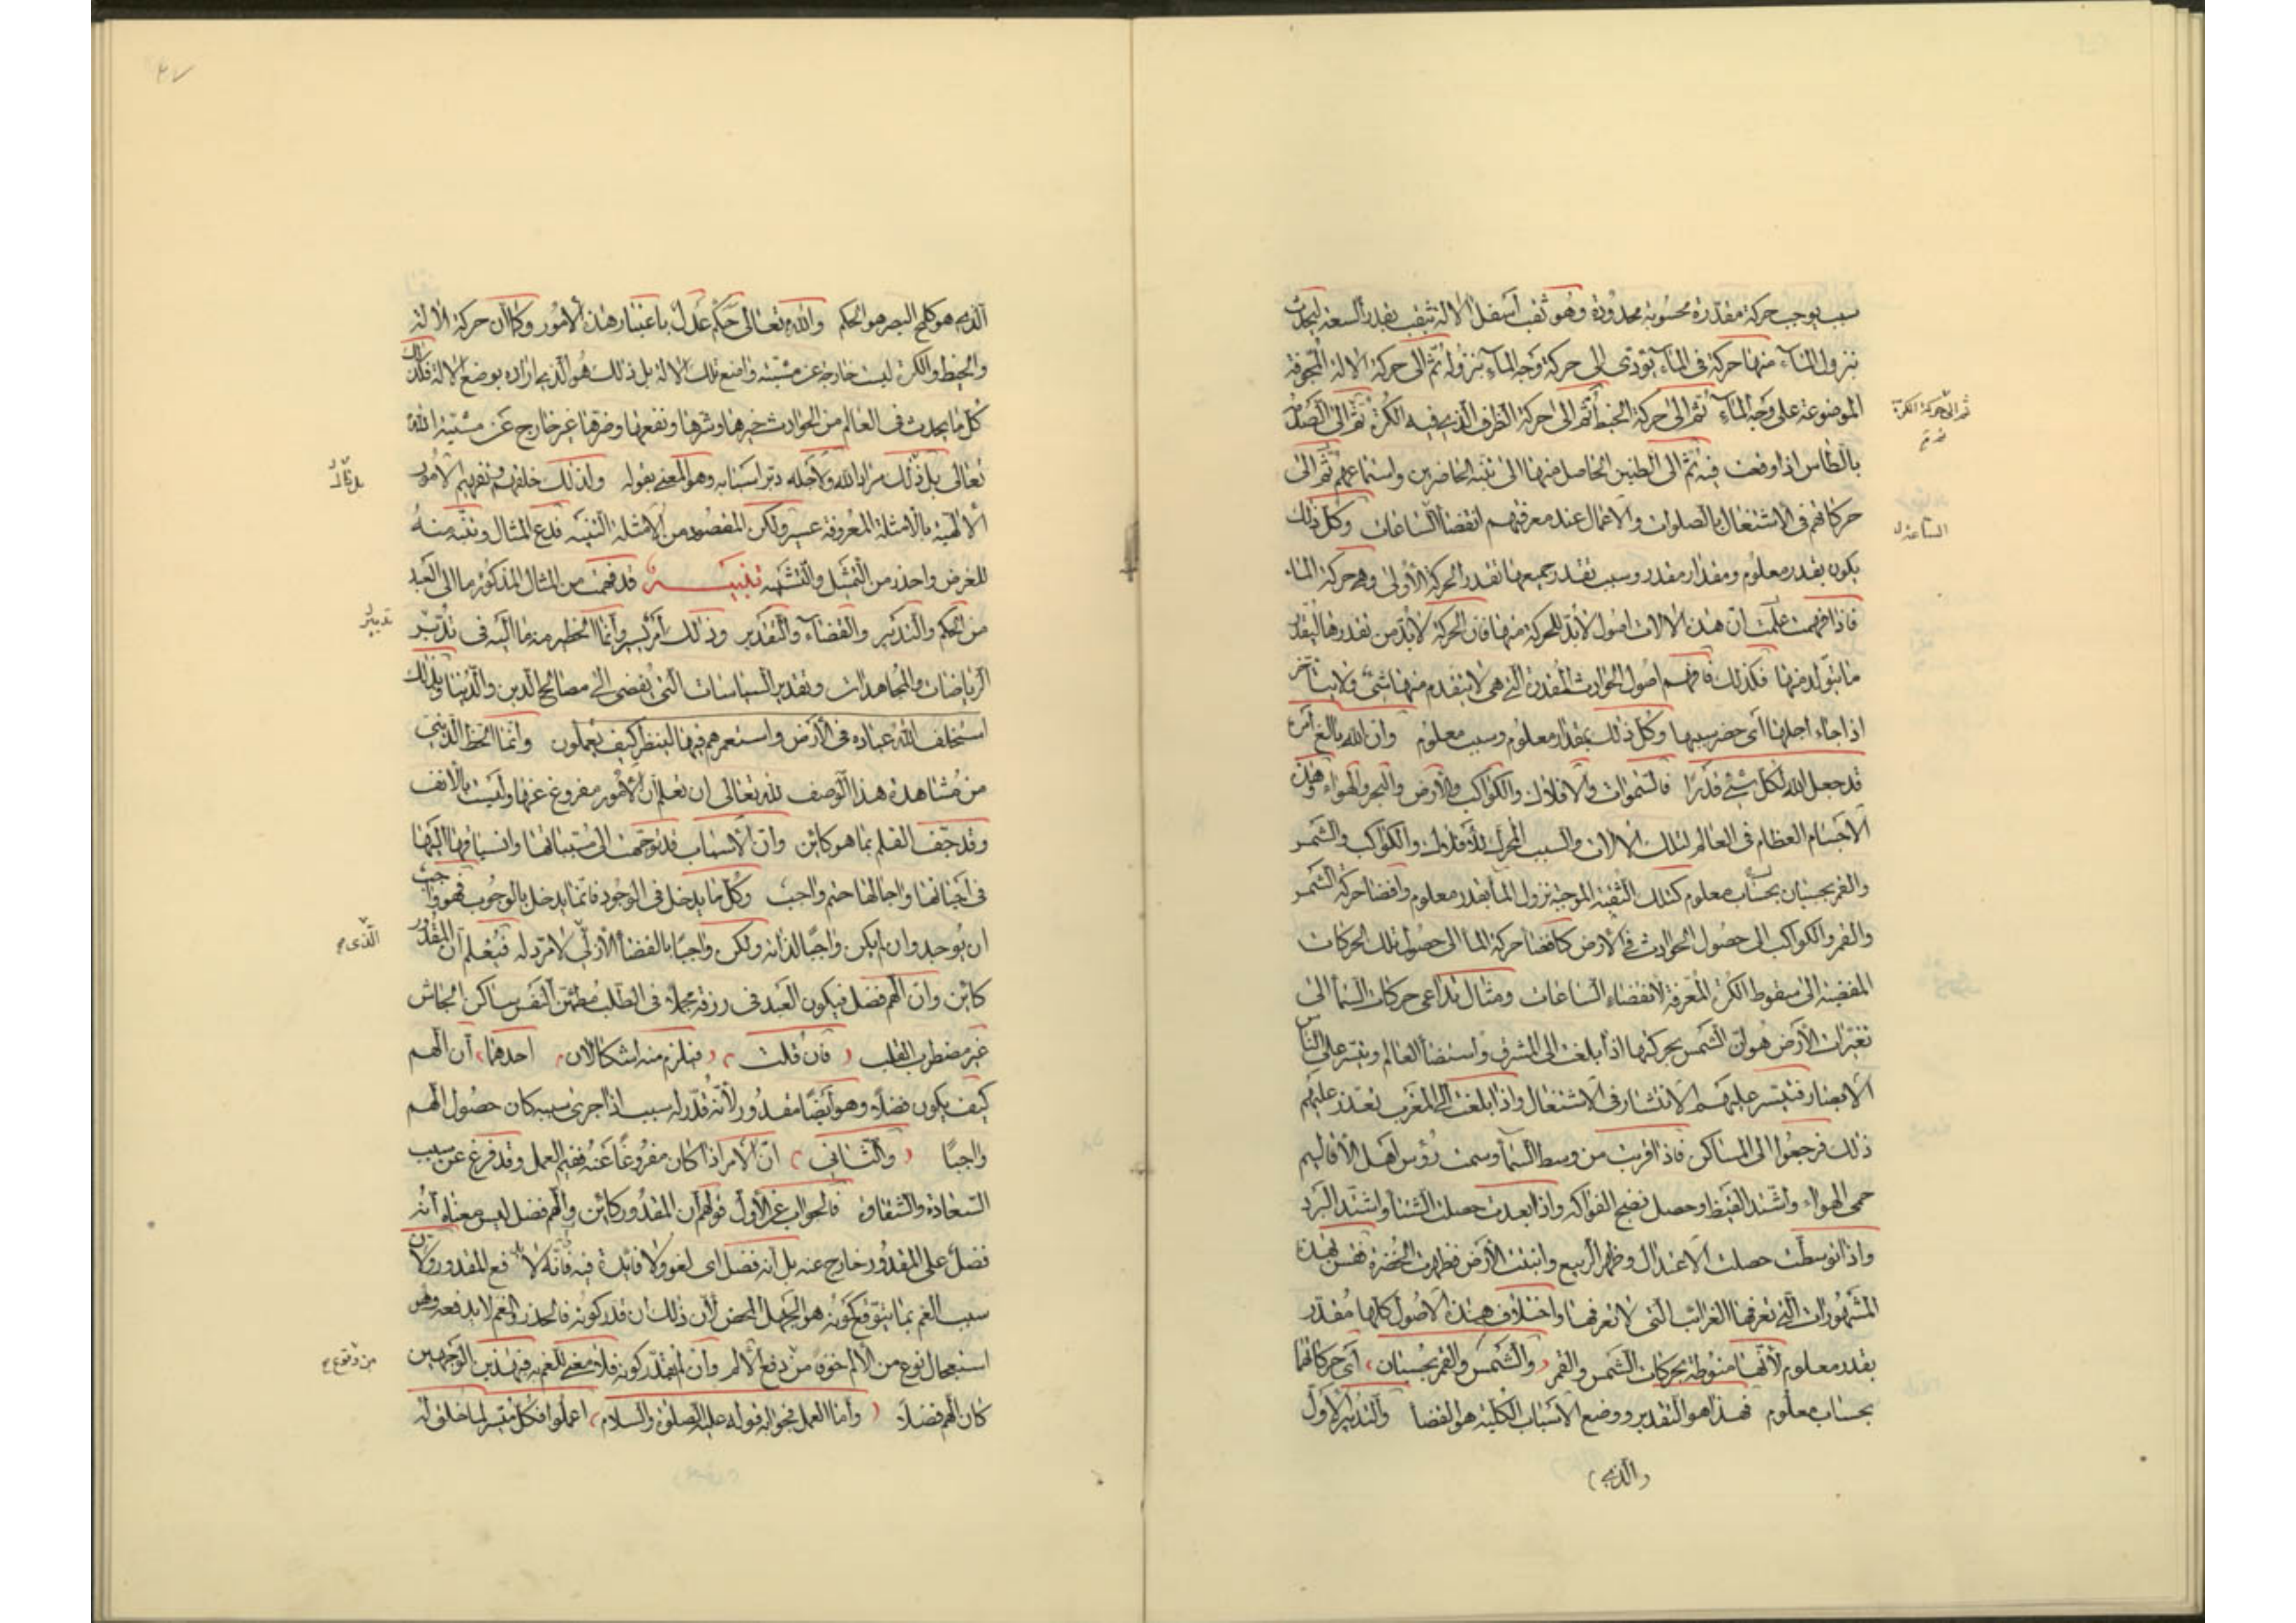 سبب يوجب حركة مقدرة محسوبة محدودة وهو ثقب أسفل الالة بثقب بقدر السعة ليحدث
نزول المآء منها حركة فى المآء يؤدى الى حركة وجه المآء بنزوله ثم الى حركة الالة المجوفة
الموضوعة على وجه المآء ثم الى حركة الخيط ثم الى حركة الظرف الذى فيه الكرة ثم الى الصدمة
ثم الى حركة الكرة
بالطاس اذا وقعت فيه ثم الى الطنين الحاصل منها الى تنبه الحاضرين واستماعهم ثم الى
حركاتهم فى الاشتغال بالصلوات والاعمال عند معرفتهم انقضآ الساعات وكل ذلك
الساعة
يكون بقدر معلوم ومقدار مقدر وسبب تقدر جميعها تقدر الحركة الأولى وهى حركة المآء
فاذا فهمت علمت ان هذه الالات اصول لابد للحركة منها فان الحركة لابد من تقدرها ليتقدر
ما يتولد منها فكذلك فافهم اصول الحوادث المقدرة التى هى لا يتقدم منها شئ ولا يتأخر
اذا جاء اجلها أى حضر سببها وكل ذلك بمقدار معلوم وسبب معلوم وان الله بالغ أمره
قد جعل الله لكل شئ قدرًا فالسموات والافلاك والكواكب والأرض والبحر والهواء وهذه
الاجسام العظام فى العالم كتلك الالات والسبب المحرك للأفلاك والكواكب والشمس
والقمر بحسبان بحساب معلوم كتلك الثقبة الموجبة نزول المآ بقدر معلوم وافضا حركة الشمس
والقمر والكواكب الى حصول الحوادث فى الارض كافضا حركة المآ الى حصول تلك الحركات
المفضية الى سقوط الكرة المعرفة لانقضاء الساعات ومثال تداعى حركات السمآ الى
تغيرات الأرض هو ان الشمس بحركتها اذا بلغت الى المشرق واستضآ العالم وتيسر على الناس
الابصار فتيسر عليهم الانتشار فى الاشتغال واذا بلغت الى المغرب تعذر عليهم
ذلك فرجعوا الى المساكن فاذا قربت من وسط السمآ وسمت رؤس اهل الأقاليم
حمى الهواء واشتد القيظ وحصل نضج الفواكه واذا بعدت حصلت الشتا واشتد البرد
واذا توسطت حصلت الاعتدال وظهر الربيع وانبتت الأرض فظهرت الخضرة فقس بهذه
المشهورات التى تعرفها الغرائب التى لا تعرفها واختلاف هذه الاصول كلها مقدر
بقدر معلوم لأنها منوطة بحركات الشمس والقمر (والشمس والقمر بحسبان) أى حركاتهما
بحساب معلوم فهذا هو التقدير ووضع الاسباب الكلية هو القضآ والتدبير الأول
(والذى)
الذى هو كلمح البصر هو الحكم والله تعالى حكم عدل باعتبار هذه الأمور وكما ان حركة الالة
والخيط والكرة ليست خارجة عن مشية واضع تلك الالة بل ذلك هو الذى اراده بوضع الالة فكذلك
كل ما يحدث فى العالم من الحوادث خيرها وشرها ونفعها وضرها غير خارج عن مشية الله
تعالى بل ذلك مراد الله ولاجله دبر اسبابه وهو المعنى بقوله ولذلك خلقهم وتفهيم الأمور
الالهية بالامثلة المعروفة عسير ولكن المقصود من الامثلة التنبيه فدع المثال وتنبه منه
للغرض واحذر من التمثيل والتشبيه تنبيه قد فهمت من المثال المذكور ما الى العبد
من الحكم والتدبير والقضاء والتقدير وذلك أمر يسير وانما الخطير منه ما اليه فى تدبير
تدبير
الرياضات والمجاهدات وتقدير السياسات التى تفضى الى مصالح الدين والدنيا وبذلك
استخلف الله عباده فى الأرض واستعمرهم فيها لينظر كيف يعملون وانما الحظ الدينى
من مشاهدة هذا الوصف لله تعالى ان تعلم ان الأمور مفروغ عنها وليست بالانف
وقد جف القلم بما هو كاين وان الاسباب قد توجهت الى مسبباتها وانسياقها اليها
فى احيانها واجالها حتم واجب وكل ما يدخل فى الوجود فانما يدخل بالوجوب فهو واجب
ان يوجد وان لم يكن واجبًا لذاته ولكن واجبًا بالقضآ الأزلى لا مرد له فيعلم ان المقدور
الذى
كاين وان الهم فضل فيكون العبد فى رزقه مجملا فى الطلب مطمئن النفس ساكن الجاش
غير مضطرب القلب (فان قلت) (فيلزم منه اشكالان) احدهما ان الهم
كيف يكون فضلا وهو أيضًا مقدور لأنه قدر له سبب اذا جرى سببه كان حصول الهم
واجبًا (والثانى) ان الأمر اذا كان مفروغًا عنه ففيم العمل وقد فرغ عن سبب
السعادة والشقاوة فالجواب عن الأول قولهم ان المقدور كاين والهم فضل ليس معناه أنه
فضل على المقدور خارج عنه بل أنه فضل اى لغو ولا فايدة فيه فانه لا يدفع المقدور ولان
سبب الغم بما يتوقع كونه هو الجهل المحض لأن ذلك ان قدر كونه فالحذر والغم لا يدفعه وهو
استعجال نوع من الألم خوفا من دفع الالم وان لم يقدر كونه فلا معنى للغم به فبهذين الوجهين
من وقوع
كان الهم فضلا (وأما العمل فجوابه قوله عليه الصلوة والسلام) اعملوا فكل ميسر لما خلق له